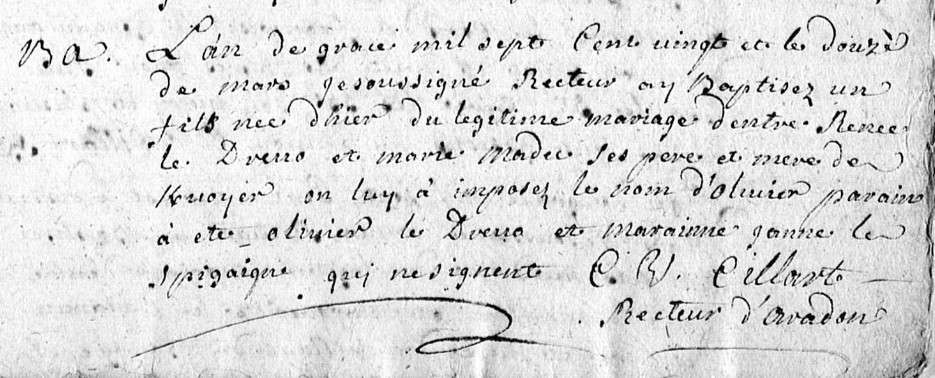 Ba. L'an de grace mil sept Cent vingt et le douzè
de mars je soussigné Recteur ay Baptisez un
fils neè d'hier du legitime mariage d'entre Renee
le Dreuo et marie madec ses pere et mere de
Kuoyer on luy à imposez le nom d'olivier parain
à ete olivier le Dreuo et marainne janne le
Spigaigne qui ne signent C. V. Cillart
Recteur d'aradon